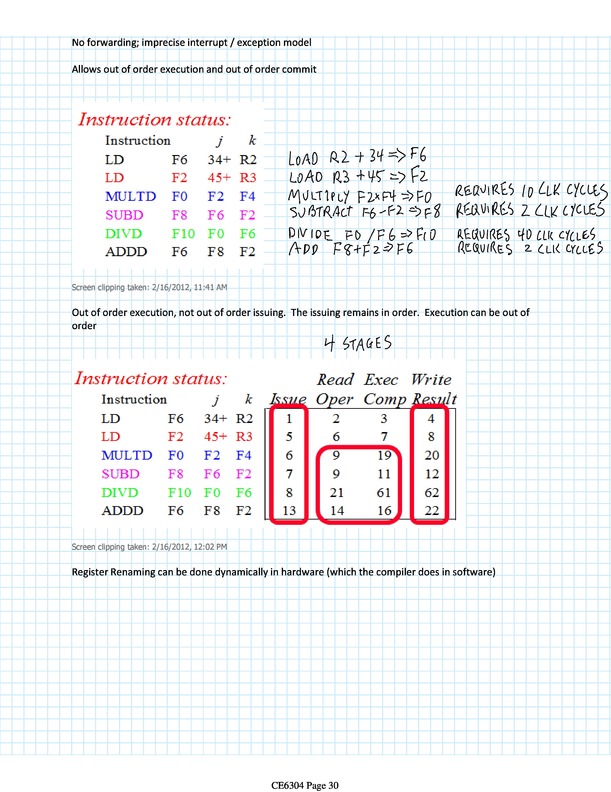 No forwarding; imprecise interrupt / exception model
Allows out of order execution and out of order commit
Instruction status:
Instruction j k
LD F6 34+ R2
LD F2 45+ R3
MULTD F0 F2 F4
SUBD F8 F6 F2
DIVD F10 F0 F6
ADDD F6 F8 F2
LOAD R2 + 34 => F6
LOAD R3 + 45 => F2
MULTIPLY F2xF4 => F0 REQUIRES 10 CLK CYCLES
SUBTRACT F6-F2 => F8 REQUIRES 2 CLK CYCLES
DIVIDE F0 / F6 => F10 REQUIRES 40 CLK CYCLES
ADD F8+F2 => F6 REQUIRES 2 CLK CYCLES
Screen clipping taken: 2/16/2012, 11:41 AM
Out of order execution, not out of order issuing. The issuing remains in order. Execution can be out of
order
4 STAGES
Instruction status: Read Exec Write
Instruction j k Issue Oper Comp Result
LD F6 34+ R2 1 2 3 4
LD F2 45+ R3 5 6 7 8
MULTD F0 F2 F4 6 9 19 20
SUBD F8 F6 F2 7 9 11 12
DIVD F10 F0 F6 8 21 61 62
ADDD F6 F8 F2 13 14 16 22
Screen clipping taken: 2/16/2012, 12:02 PM
Register Renaming can be done dynamically in hardware (which the compiler does in software)
CE6304 Page 30